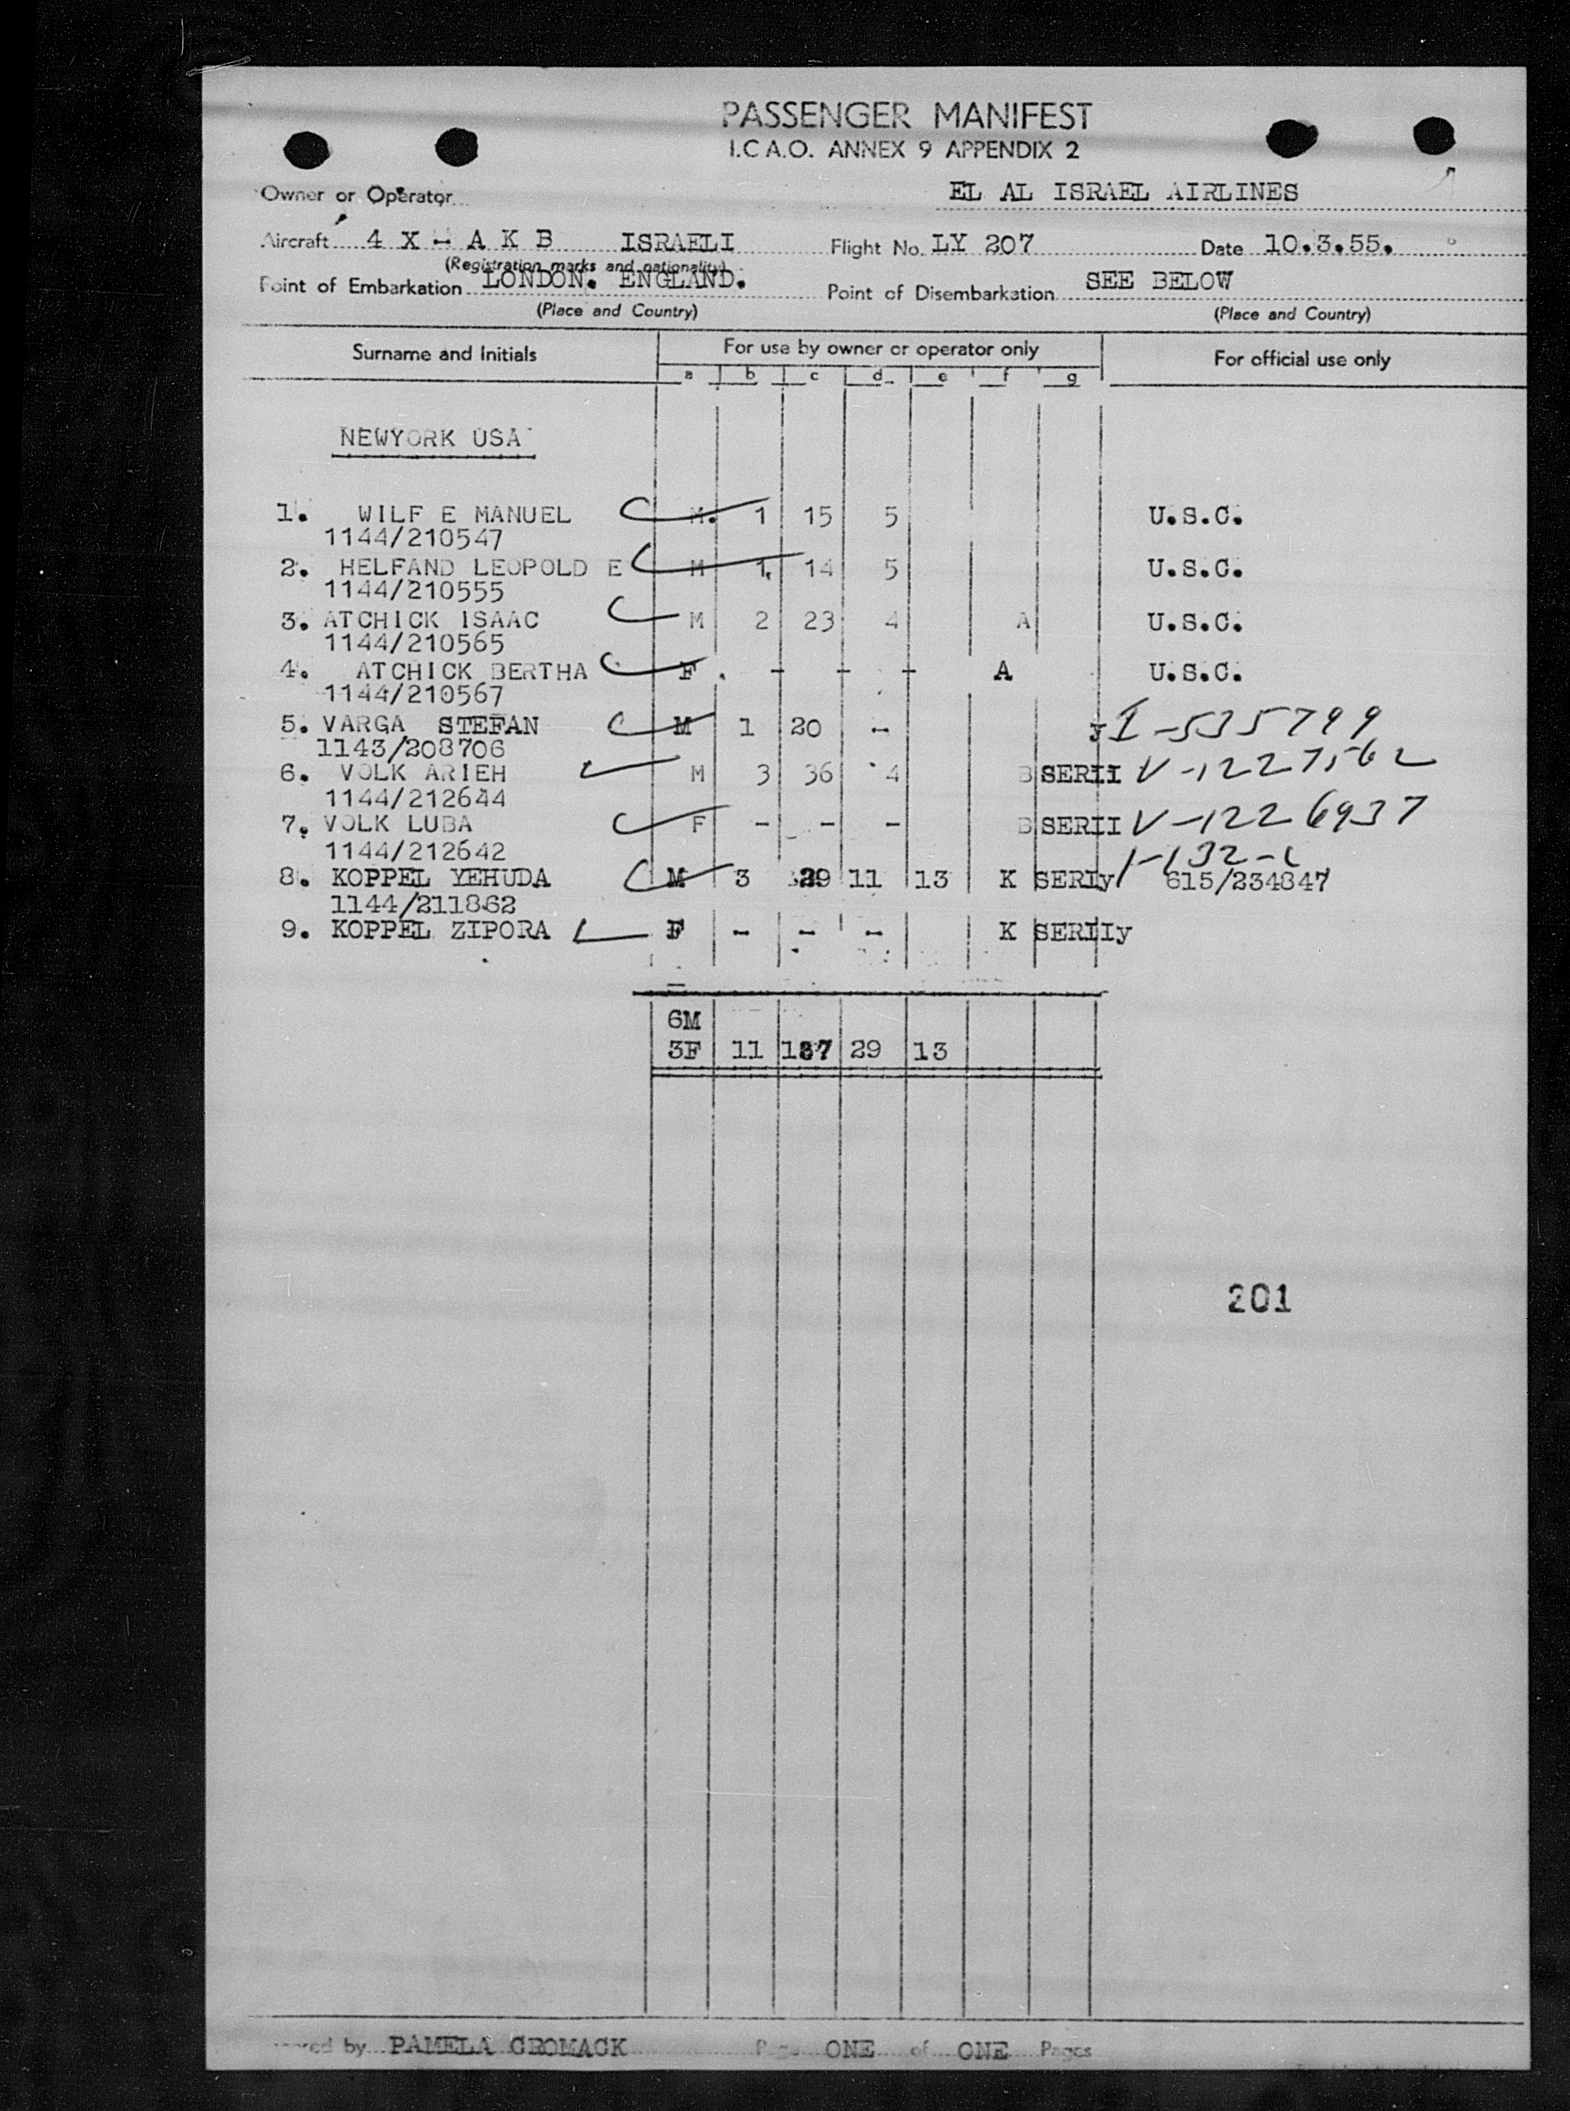 PASSENGER MANIFEST
I.C.A.O. ANNEX 9 APPENDIX 2
Owner or Operator EL AL ISRAEL AIRLINES
Aircraft 4 X - A K B ISRAELI Flight No. LY 207 Date 10.3.55.
(Registration marks and nationality)
Point of Embarkation LONDON. ENGLAND. Point of Disembarkation SEE BELOW
(Place and Country) (Place and Country)
Surname and Initials For use by owner or operator only For official use only
a b c d e f g
NEWYORK USA
1. WILF E MANUEL M. 1 15 5 U.S.C.
1144/210547
2. HELFAND LEOPOLD E M 1. 14 5 U.S.C.
1144/210555
3. ATCHICK ISAAC M 2 23 4 A U.S.C.
1144/210565
4. ATCHICK BERTHA F . - - - A U.S.C.
1144/210567
5. VARGA STEFAN M 1 20 - J I-535799
1143/208706
6. VOLK ARIEH M 3 36 4 B SERII V-1227562
1144/212644
7. VOLK LUBA F - - - B SERII V-1226937
1144/212642
8. KOPPEL YEHUDA M 3 29 11 13 K SERIy 615/234847
1144/211862
9. KOPPEL ZIPORA F - - - K SERIIy
6M
3F 11 137 29 13
201
by PAMELA CROMACK Page ONE of ONE Pages